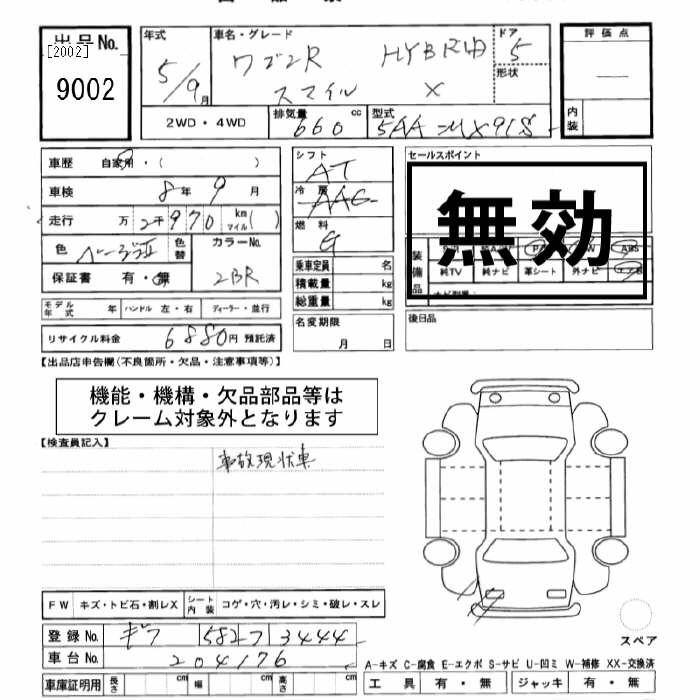 出品No.
[2002]
9002
年式
5/9月
車名・グレード
ワゴンR HYBRID
スマイル X
ドア
5
形状
評価点
―
内装
2WD・4WD
排気量 660 cc
型式 5AA-MX91S
車歴 自家用・( )
車検 8年 9月
走行 万 2千970 km マイル ( )
色 ベージュ
色替
カラーNo.
2BR
保証書 有・無
モデル年式 年
ハンドル 左・右
ディーラー・並行
リサイクル料金 6880円 預託済
シフト
AT
冷房
AAC
燃料
G
乗車定員 名
積載量 kg
総重量 kg
名変期限
月 日
セールスポイント
無効
装備品
純TV 純ナビ 革シート 外ナビ
後日品
【出品店申告欄(不良箇所・欠品・注意事項等)】
機能・機構・欠品部品等は
クレーム対象外となります
【検査員記入】
事故現状車
FW キズ・トビ石・割レX
シート内装 コゲ・穴・汚レ・シミ・破レ・スレ
登録No. ギフ 582 フ 3444
車台No. 204176
車庫証明用 長さ cm 幅 cm 高さ cm
スペア
A-キズ C-腐食 E-エクボ S-サビ U-凹ミ W-補修 XX-交換済
工具 有・無 ジャッキ 有・無